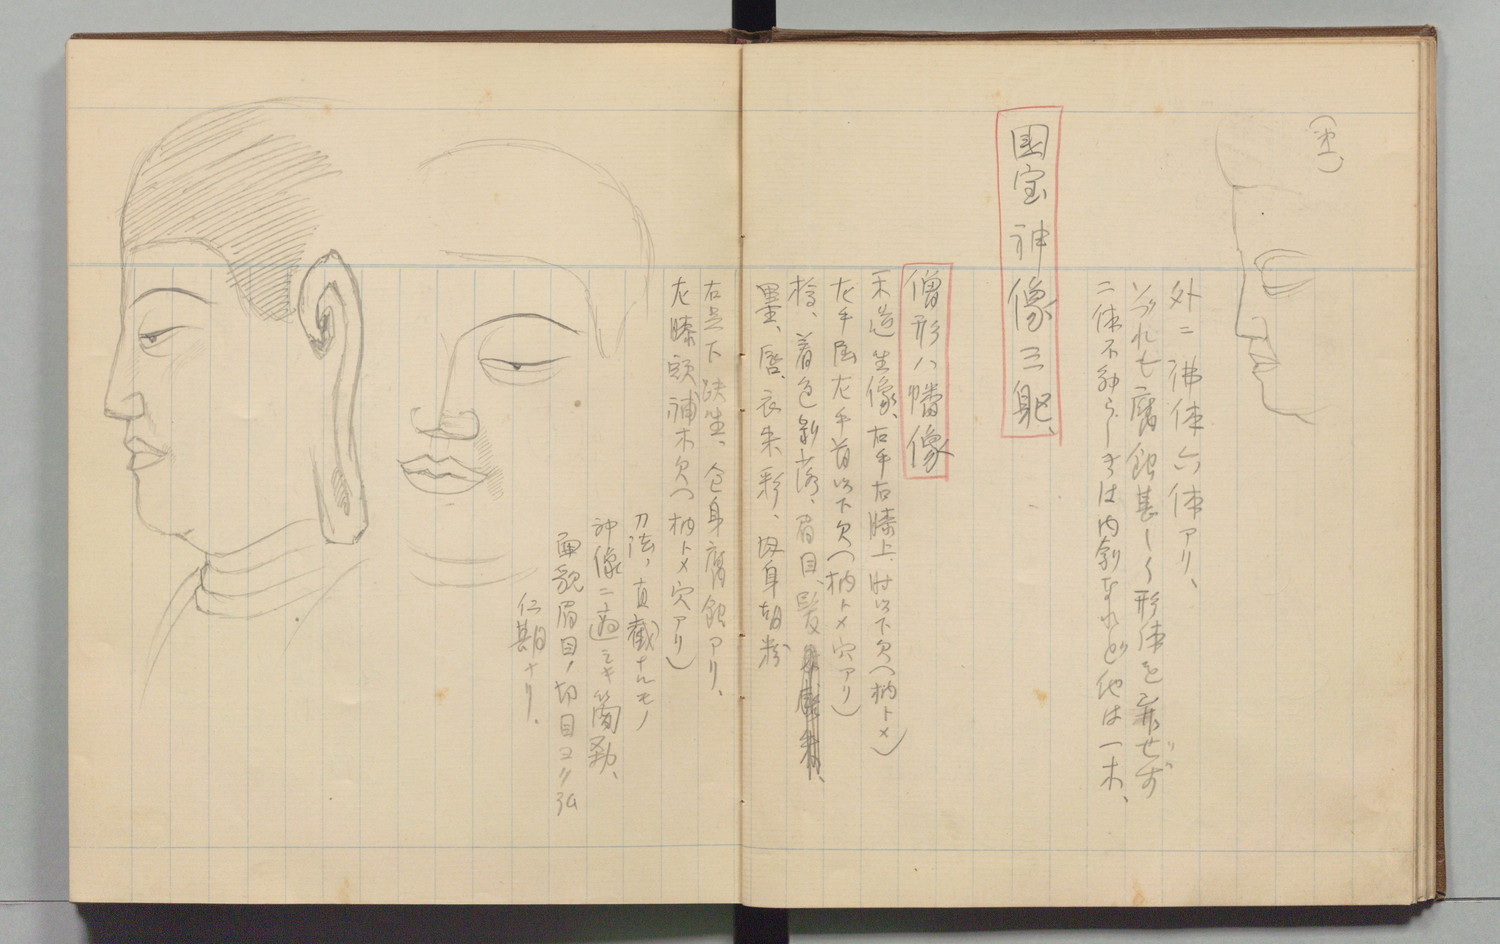 外ニ佛体六体アリ、
いづれも腐蝕甚しく形体を存せず
二体不詳らしきは内刳なれど他は一木、
国宝神像三躯、
僧形八幡像
木造坐像、右手右膝上、肘以下欠(枘トメ)
左手屈左手首以下欠(枘トメ穴アリ)
檜、着色剥落、眉目、髪
墨、唇、衣朱彩、肉身胡粉
右足下缺失、全身腐蝕アリ、
左膝頭補木欠(枘トメ穴アリ)
刀法、直截ナルモノ
神像ニ適シキ簡勁、
面貌眉目ノ切目ヨリ弘
仁期ナリ、